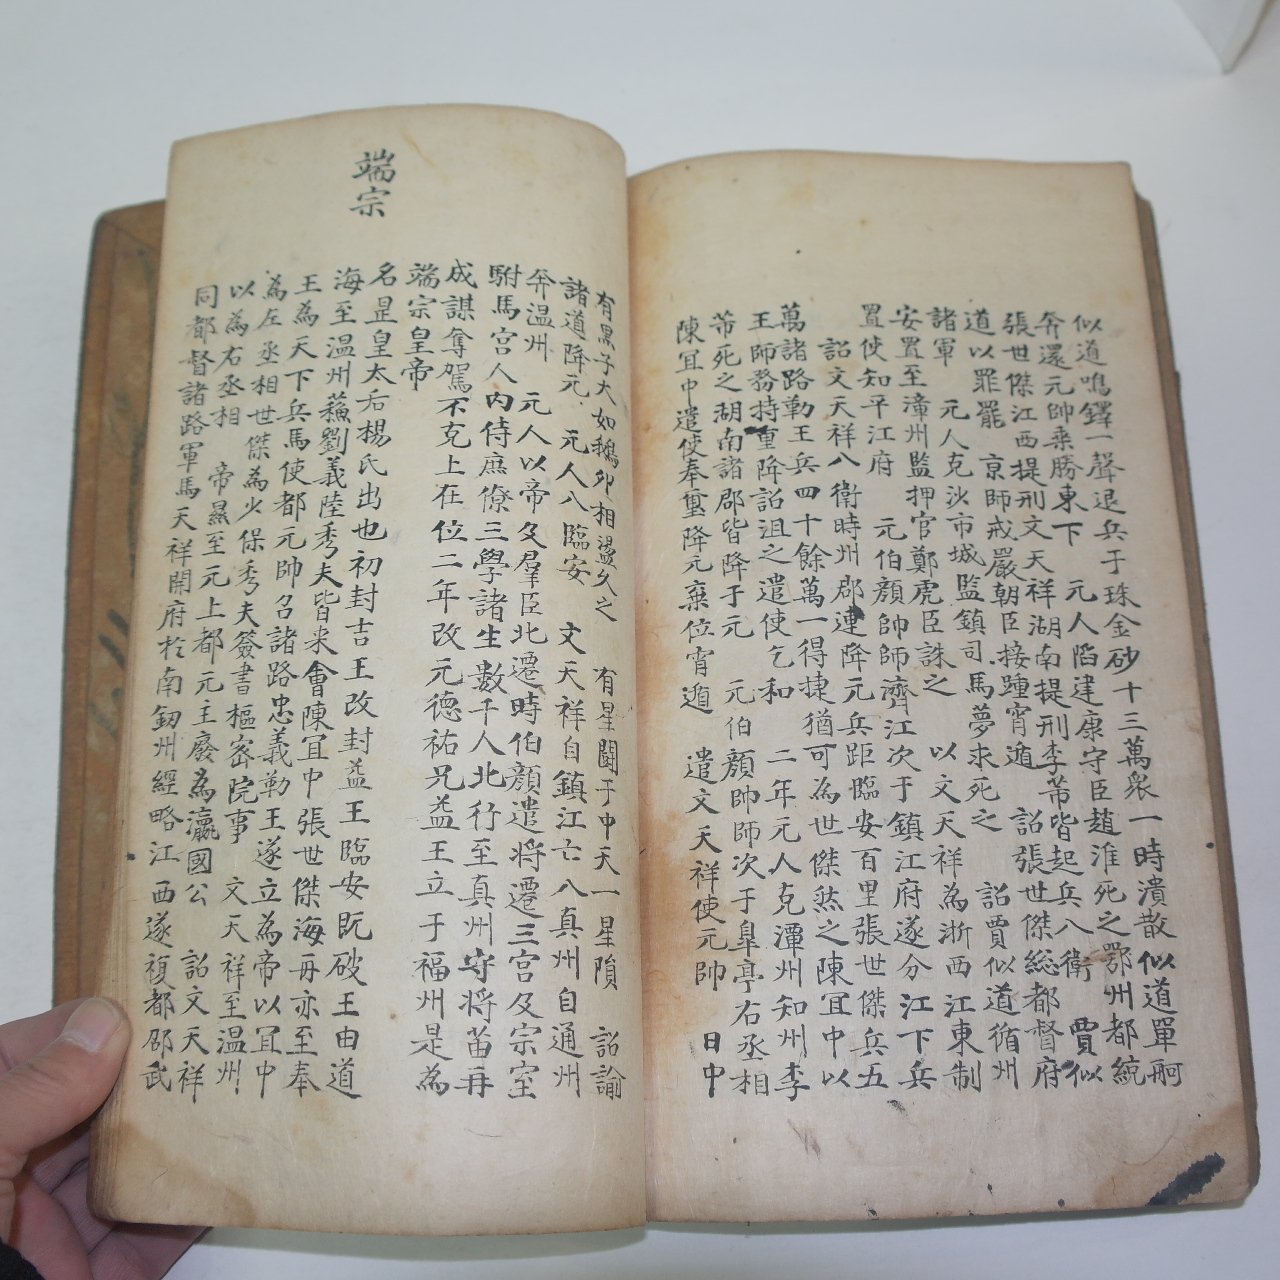 似道鳴鐸一聲退兵于珠金砂十三萬衆一時潰散似道單舸
奔還元帥乘勝東下　元人陷建康守臣趙淮死之鄂州都統
張世傑江西提刑文天祥湖南提刑李芾皆起兵入衛　賈似
道以罪罷　京師戒嚴朝臣接踵宵遁　詔張世傑総都督府
諸軍　元人克沙市城監鎮司馬夢求死之　詔賈似道循州
安置至漳州監押官鄭虎臣誅之　以文天祥為浙西江東制
置使知平江府　元伯顏帥師濟江次于鎮江府遂分江下兵
詔文天祥入衛時州郡連降元兵距臨安百里張世傑兵五
萬諸路勤王兵四十餘萬一得捷猶可為世傑然之陳宜中以
王師務持重降詔沮之遣使乞和　二年元人克潭州知州李
芾死之湖南諸郡皆降于元　元伯顏帥師次于臯亭右丞相
陳宜中遣使奉璽降元棄位宵遁　遣文天祥使元帥　日中
有黑子大如鵝卵相盪久之　有星鬪于中天一星隕　詔諭
諸道降元　元人入臨安　文天祥自鎮江亡入真州自通州
奔温州　元人以帝及羣臣北遷時伯顏遣将遷三宮及宗室
駙馬宮人內侍庶僚三學諸生數千人北行至真州守将苗再
成謀奪駕不克上在位二年改元德祐兄益王立于福州是為
端宗皇帝
端宗
名昰皇太后楊氏出也初封吉王改封益王臨安既破王由道
海至温州蘓劉義陸秀夫皆来會陳宜中張世傑海舟亦至奉
王為天下兵馬使都元帥召諸路忠義勤王遂立為帝以宜中
為左丞相世傑為少保秀夫簽書樞密院事　文天祥至温州
以為右丞相　帝㬎至元上都元主廢為瀛國公　詔文天祥
同都督諸路軍馬天祥開府於南劒州經略江西遂複都邵武